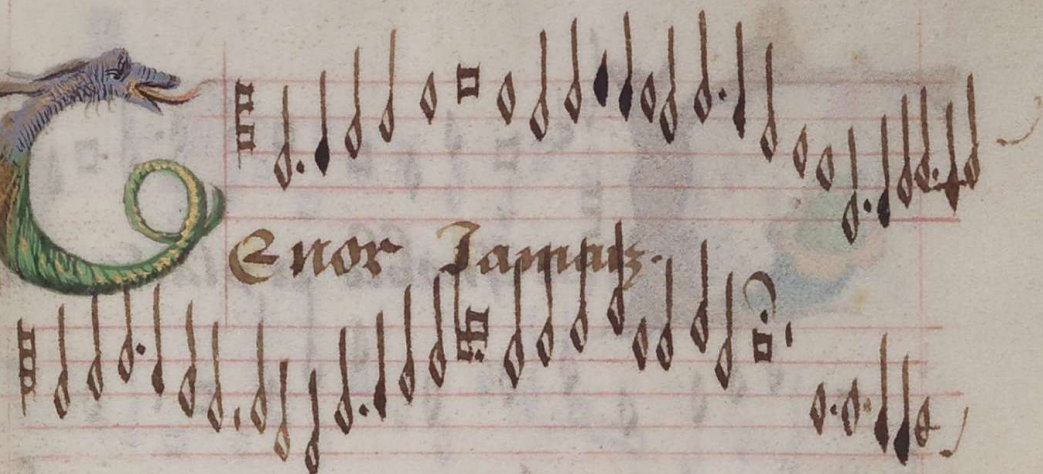 Tenor Jamais.